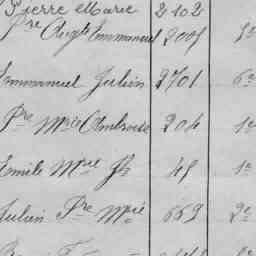 Pierre Marie 2102
Pre Augte Emmanuel 2001
Emmanuel Julien 2701 6e
Pre Mie Ambroise 204 1e
Emile Mie Je 45 1e
Julien Pre Mie 669 2e